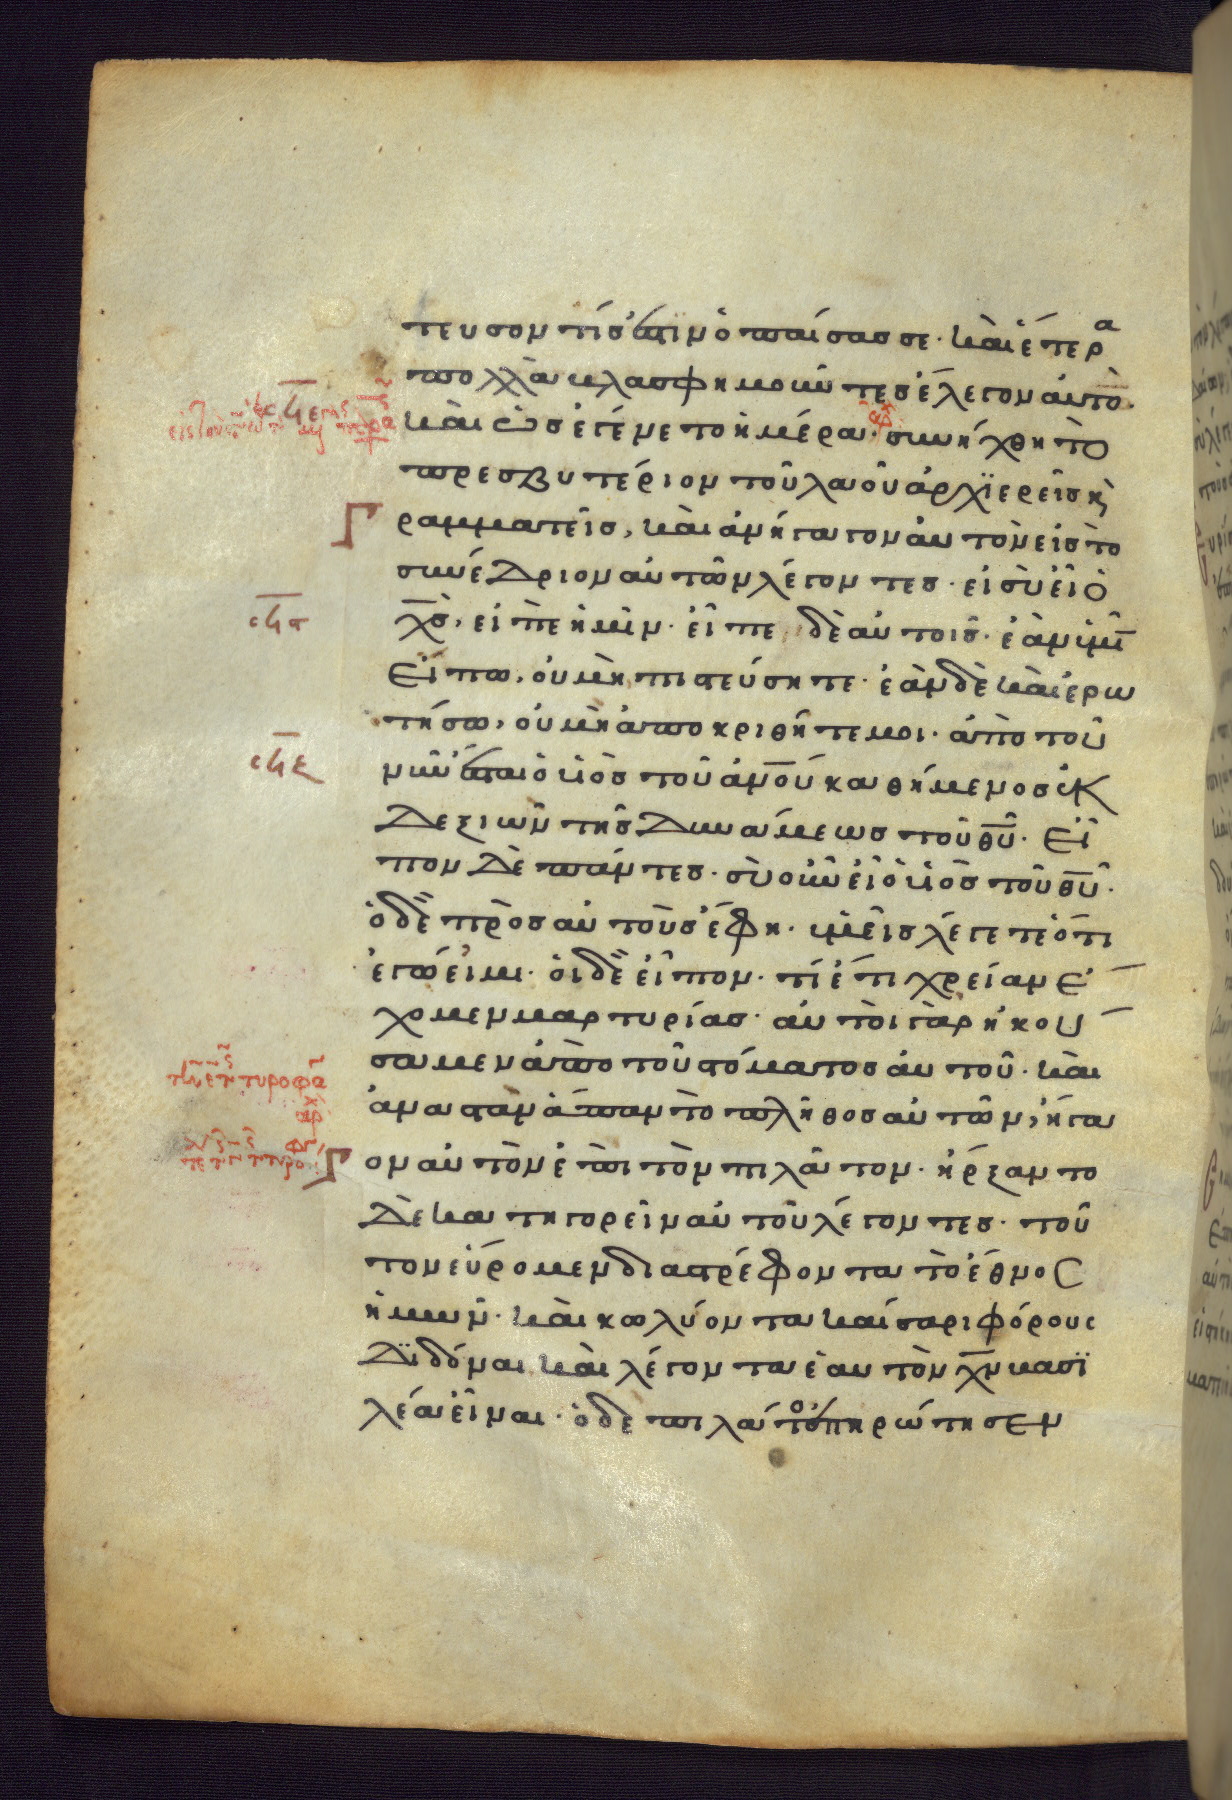 τευσον τίς ἐστιν ὁ παίσας σε· καὶ ἕτερα
πολλὰ βλασφημοῦντες ἔλεγον αὐτῶ·
καὶ ὡς ἐγένετο ἡμέρα· συνήχθη τὸ
πρεσβυτέριον τοῦ λαοῦ ἀρχϊερεῖς κὶ
γραμματεῖς, καὶ ἀνήγαγον αὐτὸν εἰς τὸ
συνέδριον αὐτῶν λέγοντες· εἰ σὺ εἶ ὁ
χς, εἰπὲ ἡμῖν· εἶπε δὲ αὐτοῖς· ἐὰν ὑμῖν
εἴπω, οὐ μὴ πιστεύσητε· ἐὰν δὲ καὶ ἐρω
τήσω, οὐ μὴ ἀποκριθῆτε μοι· ἀπὸ τοῦ
νῦν ἔσται ὁ υἱὸς τοῦ ἀνου καθήμενος ἐκ
δεξιῶν τῆς δυνάμεως τοῦ θυ· εἶ
πον δὲ πάντες· σὺ οὖν εἶ ὁ υἱὸς τοῦ θυ·
ὁ δὲ πρὸς αὐτοὺς ἔφη· ὑμεῖς λέγετε ὅτι
ἐγώ εἰμι· οἱ δὲ εἶπον· τί ἔτι χρείαν ἔ
χομεν μαρτυρίας· αὐτοὶ γὰρ ἠκού
σαμεν ἀπὸ τοῦ στόματος αὐτοῦ· καὶ
ἀναστὰν ἅπαν τὸ πλῆθος αὐτῶν, ἤγα
γον αὐτὸν ἐπὶ τὸν πιλᾶτον· ἤρξαντο
δὲ κατηγορεῖν αὐτοῦ λέγοντες· τοῦ
τον εὕρομεν διαστρέφοντα τὸ ἔθνος
ἡμῶν· καὶ κωλύοντα καίσαρι φόρους
δϊδόναι καὶ λέγοντα ἑαυτὸν χν βασϊ
λέα εἶναι· ὁ δὲ πιλάτος ἐπηρώτησεν